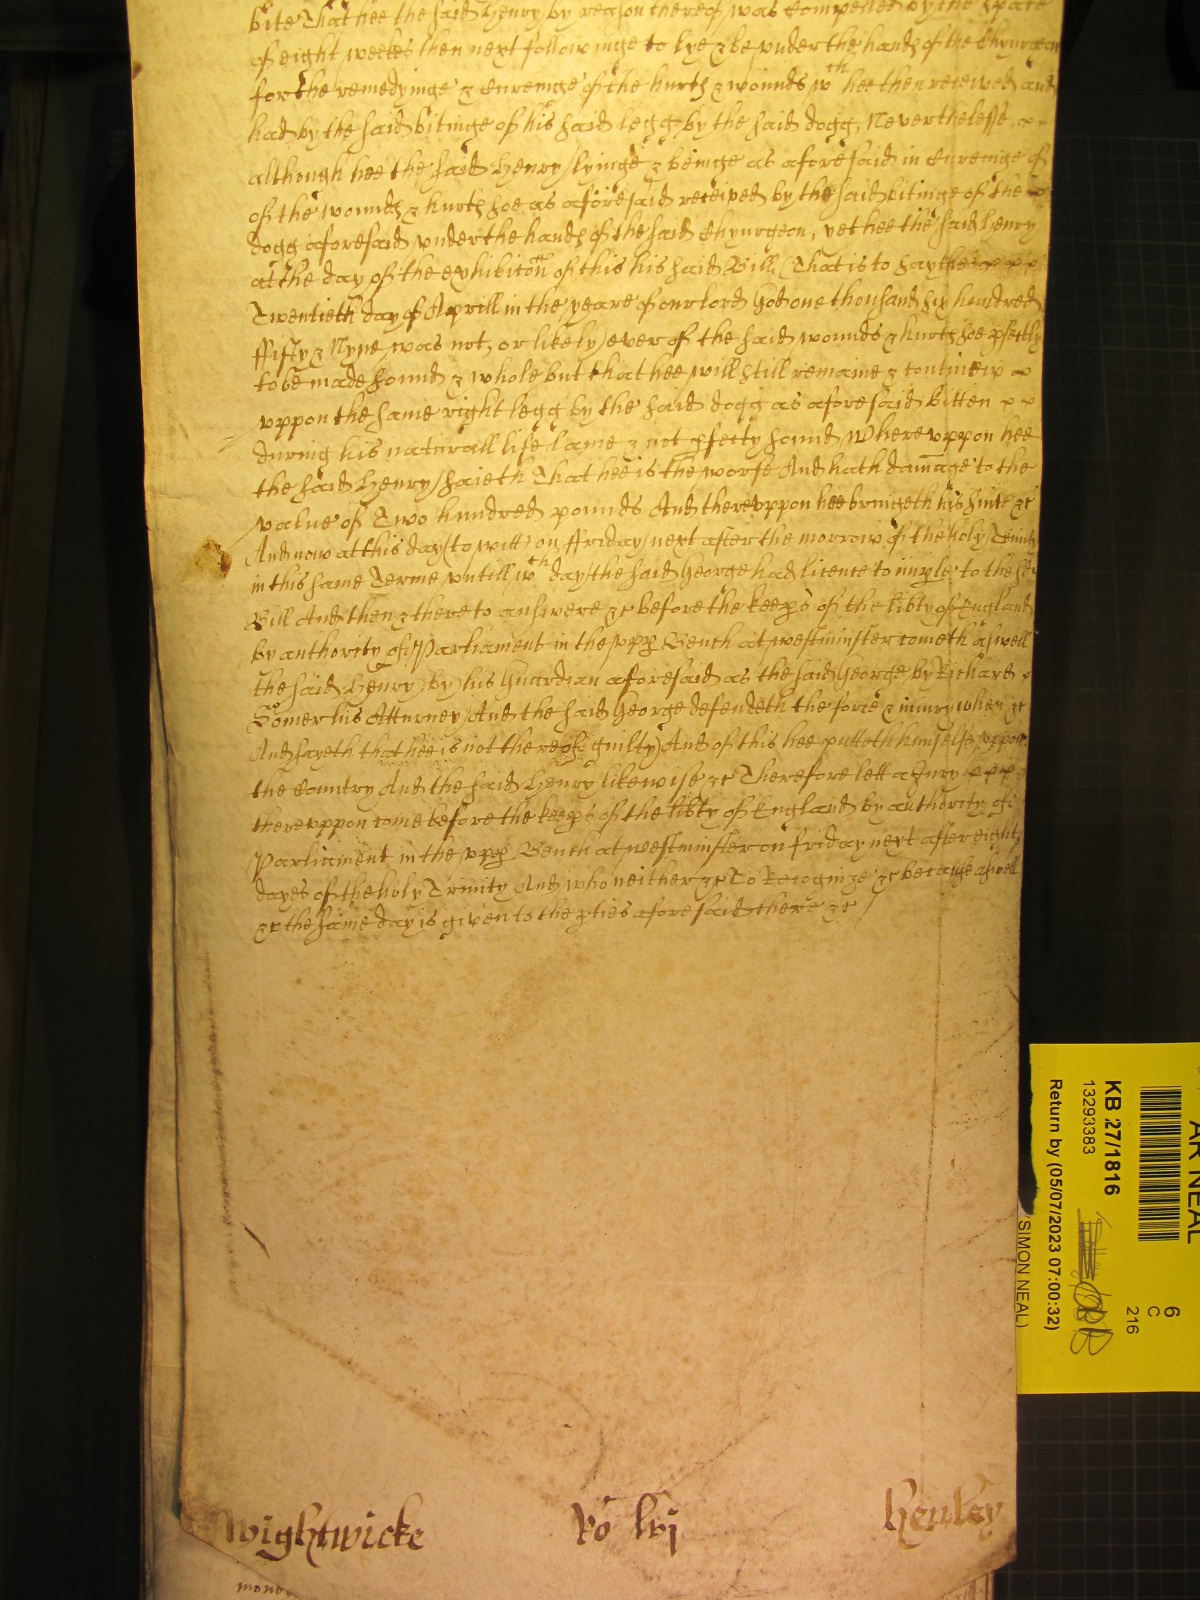 bite That hee the said Henry by reason thereof was Compelled by the space
of eight weekes then next followinge to lye & be vnder the hands of the Chyurgeon
for the remedyinge & Cureinge of the hurts & wounds wth hee then receiued and
had by the said bitinge of his said legg by the said dogg, Neverthelesse
although hee the said Henry lyinge & beinge as aforesaid in Cureinge of
of the wounds & hurts soe as aforesaid received by the said bitinge of the
dogg aforesaid vnder the hands of the said Chyurgeon, yet hee the said Henry
at the day of the exhibitōn of this his said Bill (That is to say the
Twentieth day of Aprill in the yeare of our lord God one thousand six hundred
ffifty & Nyne was not, or likely ever of the said wounds & hurts soe pfectly
to be made sound & whole but that hee will still remaine & Continew
vppon the same right legg by the said dogg as aforesaid bitten
during his naturall life lame & not pfectly sound Wherevppon hee
the said Henry saieth That hee is the worse And hath damage to the
value of Two hundred pounds And therevppon hee bringeth his suite &c
And now at this day (to witt) on ffriday next after the morrow of the holy Trinity
in this same Terme vntill wth day the said George had licence to imple to the sd
Bill And then & there to answere &c before the keeps of the libty of England
by authority of Parliament in the vpp Bench at westminster cometh aswell
the said Henry by his Guardian aforesaid as the said George by Richard
Somer his Atturney And the said George defendeth the force & iniury when &c
And sayeth that hee is not thereof guilty And of this hee putteth himselfe vppon
the Country And the said Henry likewise &c Therefore lett a Jury
therevppon come before the keeps of the libty of England by authority of
Parliament in the vpp Bench at westminster on friday next after eight
dayes of the holy Trinity And who neither &c To Recognize &c because aswell
&c the same day is given to the pties aforesaid there &c
Wightwicke Ro lvj Henley
KB 27/1816
13293383
Return by (05/07/2023 07:00:32)
(SIMON NEAL)
AR NEAL
6
C
216